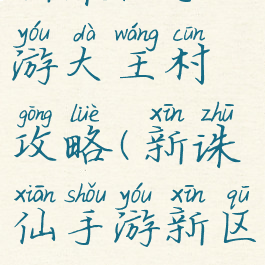 yóu dà wáng cūn
游大王村
gōng lüè xīn zhū
攻略(新诛
xiān shǒu yóu xīn qū
仙手游新区